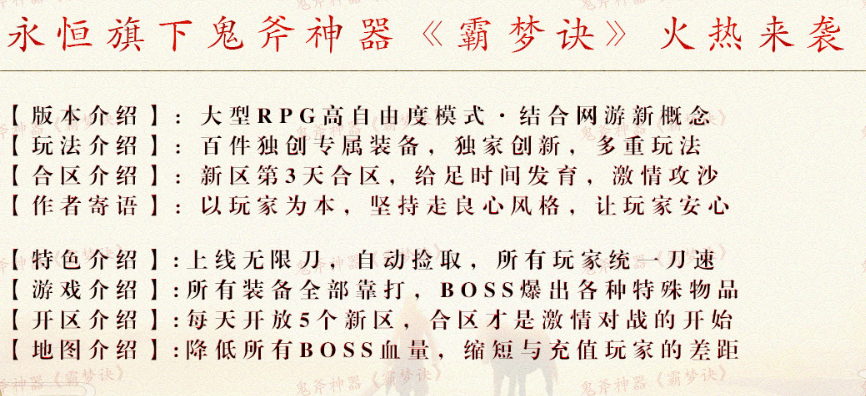 永恒旗下鬼斧神器《霸梦诀》火热来袭
【版本介绍】：大型RPG高自由度模式·结合网游新概念
【玩法介绍】：百件独创专属装备，独家创新，多重玩法
【合区介绍】：新区第3天合区，给足时间发育，激情攻沙
【作者寄语】：以玩家为本，坚持走良心风格，让玩家安心
【特色介绍】:上线无限刀，自动捡取，所有玩家统一刀速
【游戏介绍】:所有装备全部靠打，BOSS爆出各种特殊物品
【开区介绍】:每天开放5个新区，合区才是激情对战的开始
【地图介绍】:降低所有BOSS血量，缩短与充值玩家的差距
鬼斧神器《霸梦诀》
鬼斧神器《霸梦诀》